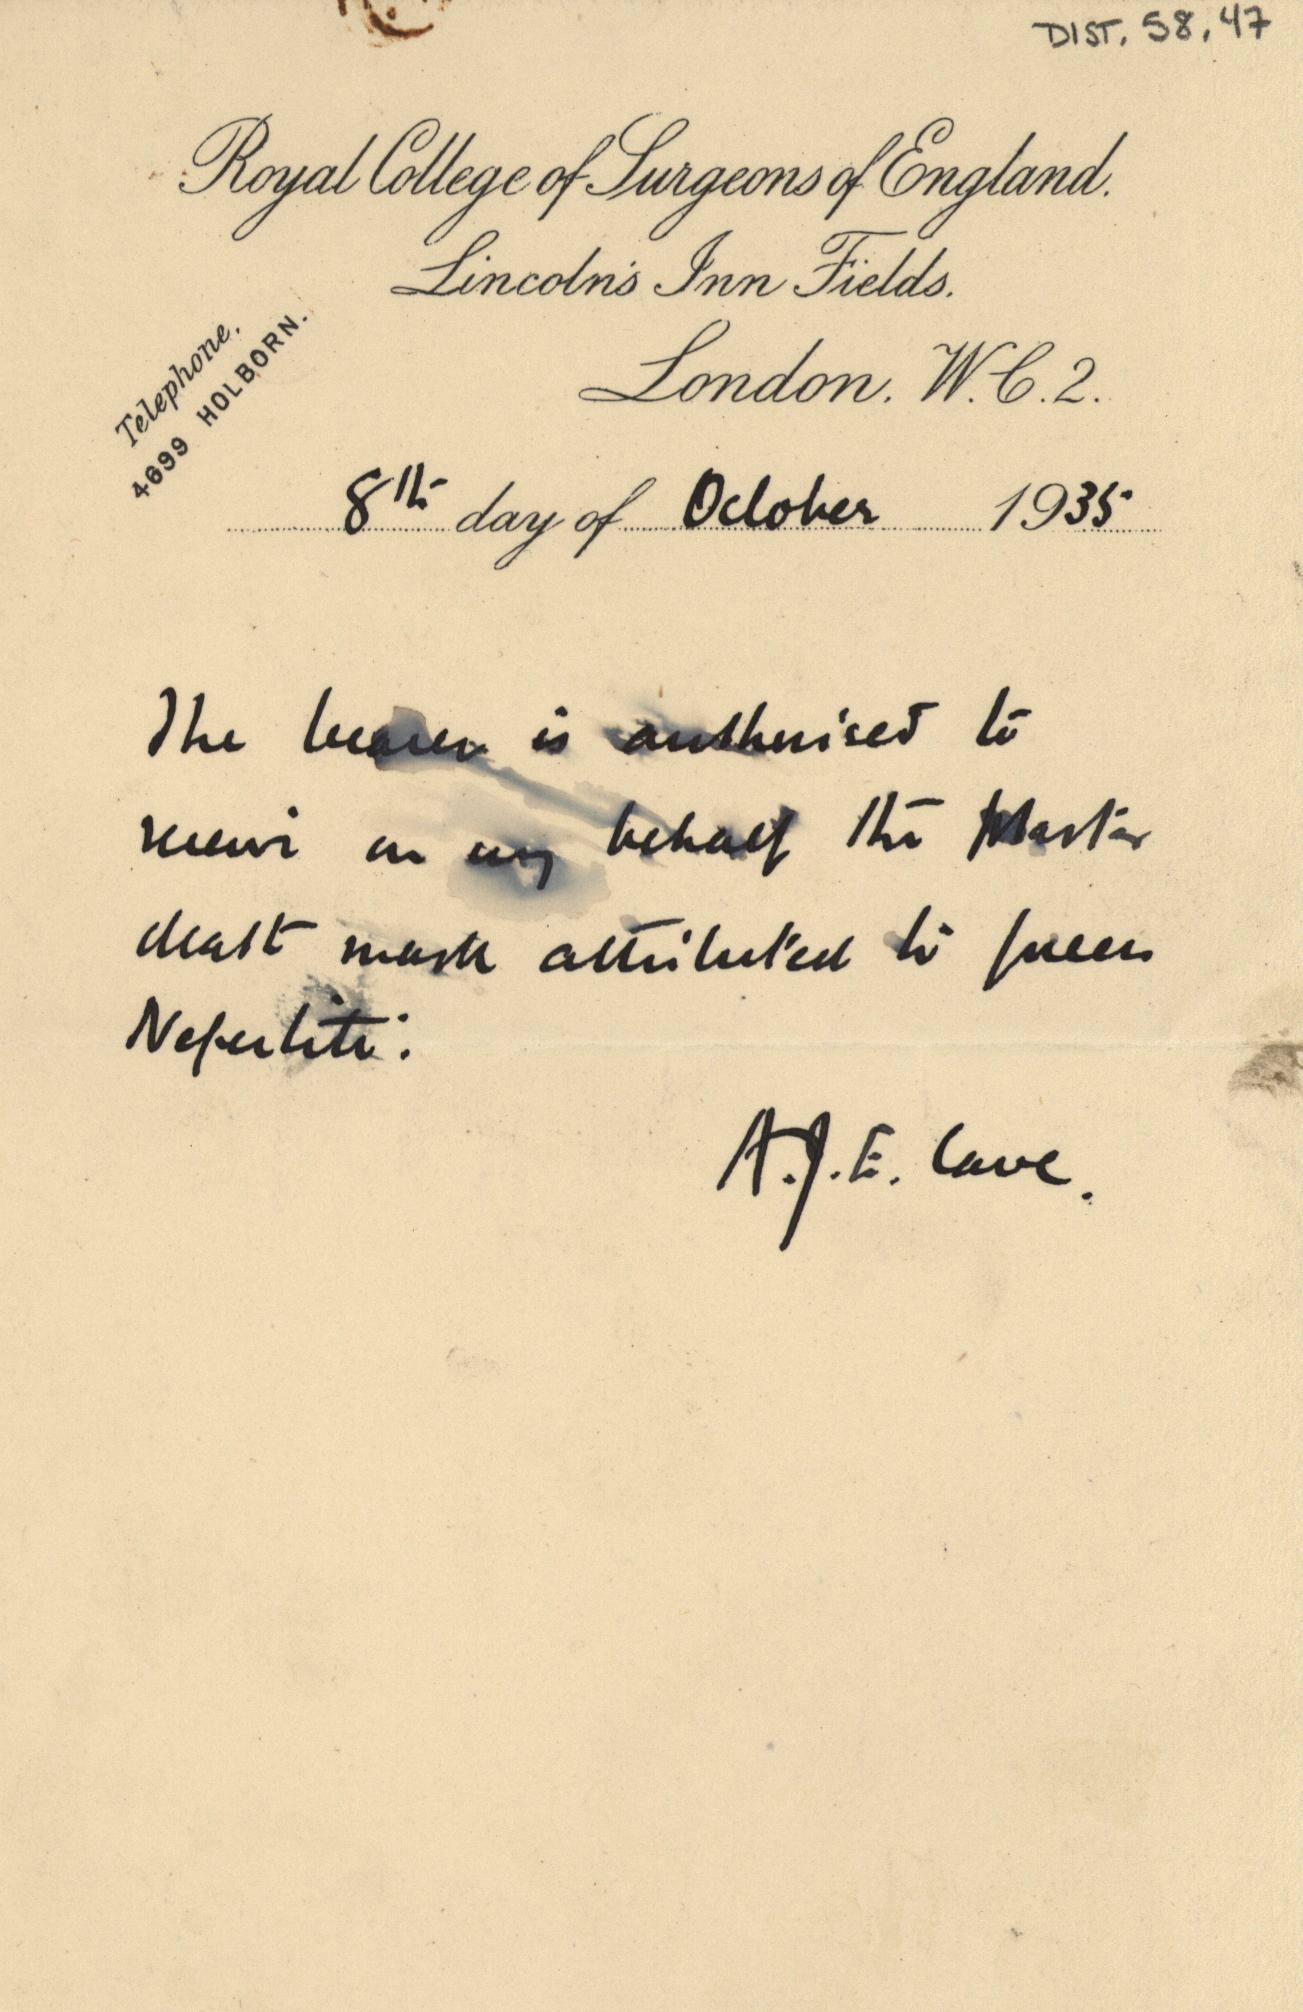 DIST. 58.47
Royal College of Surgeons of England.
Lincoln's Inn Fields.
London. W.C.2.
Telephone.
4699 HOLBORN.
8th day of October 1935
The bearer is authorised to
receive on my behalf the Plaster
death mask attributed to Queen
Nefertiti.
A.J.E. Cave.